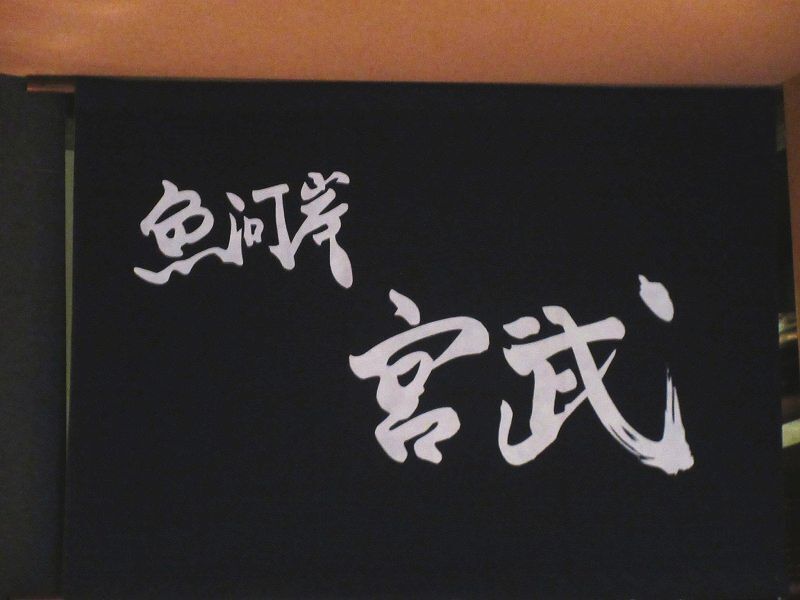 魚河岸
宮武